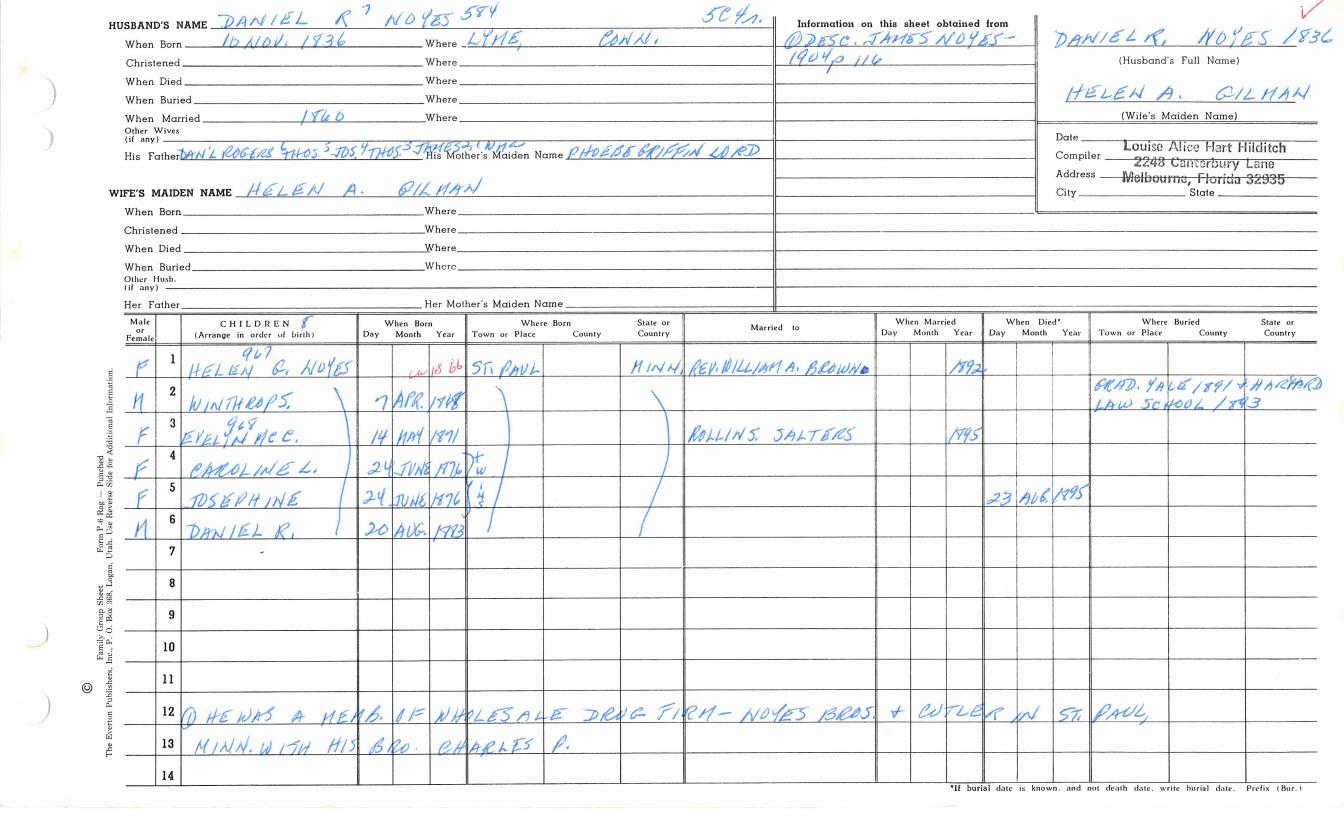 HUSBAND'S NAME DANIEL R 7 NOYES 584 5C4r.
When Born 10 NOV. 1836 Where LYME, CONN.
Christened Where
When Died Where
When Buried Where
When Married 1860 Where
Other Wives
(if any)
His Father DAN'L ROGERS 6 THOS 5 JOS. 4 THOS 3 JAMES 2, 1 His Mother's Maiden Name PHOEBE GRIFFIN LORD
WIFE'S MAIDEN NAME HELEN A. GILMAN
When Born Where
Christened Where
When Died Where
When Buried Where
Other Husb.
(if any)
Her Father Her Mother's Maiden Name
Information on this sheet obtained from
① DESC. JAMES NOYES-
1904 p 116
DANIEL R. NOYES 1836
(Husband's Full Name)
HELEN A. GILMAN
(Wife's Maiden Name)
Date
Compiler Louise Alice Hart Hilditch
Address 2248 Canterbury Lane
Melbourne, Florida 32935
City State
Male or Female CHILDREN 8 (Arrange in order of birth) When Born Day Month Year Where Born Town or Place County State or Country Married to When Married Day Month Year When Died* Day Month Year Where Buried Town or Place County State or Country
967
F 1 HELEN G. NOYES 18 66 ST. PAUL MINN. REV. WILLIAM A. BROWN 1892
M 2 WINTHROP S. 7 APR. 1868 GRAD. YALE 1891 & HARVARD
LAW SCHOOL 1893
968
F 3 EVELYN McC. 14 MAY 1871 ROLLIN S. SALTERS 1895
F 4 CAROLINE L. 24 JUNE 1876 tw
F 5 JOSEPHINE 24 JUNE 1876 ins 23 AUG. 1895
M 6 DANIEL R. 20 AUG. 1883
7
8
9
10
11
12 ① HE WAS A MEMB. OF WHOLESALE DRUG FIRM- NOYES BROS. & CUTLER IN ST. PAUL,
13 MINN. WITH HIS BRO. CHARLES P.
14
*If burial date is known, and not death date, write burial date. Prefix (Bur.)
Family Group Sheet Form P-8 Rag — Punched
© The Everton Publishers, Inc., P. O. Box 368, Logan, Utah. Use Reverse Side for Additional Information.